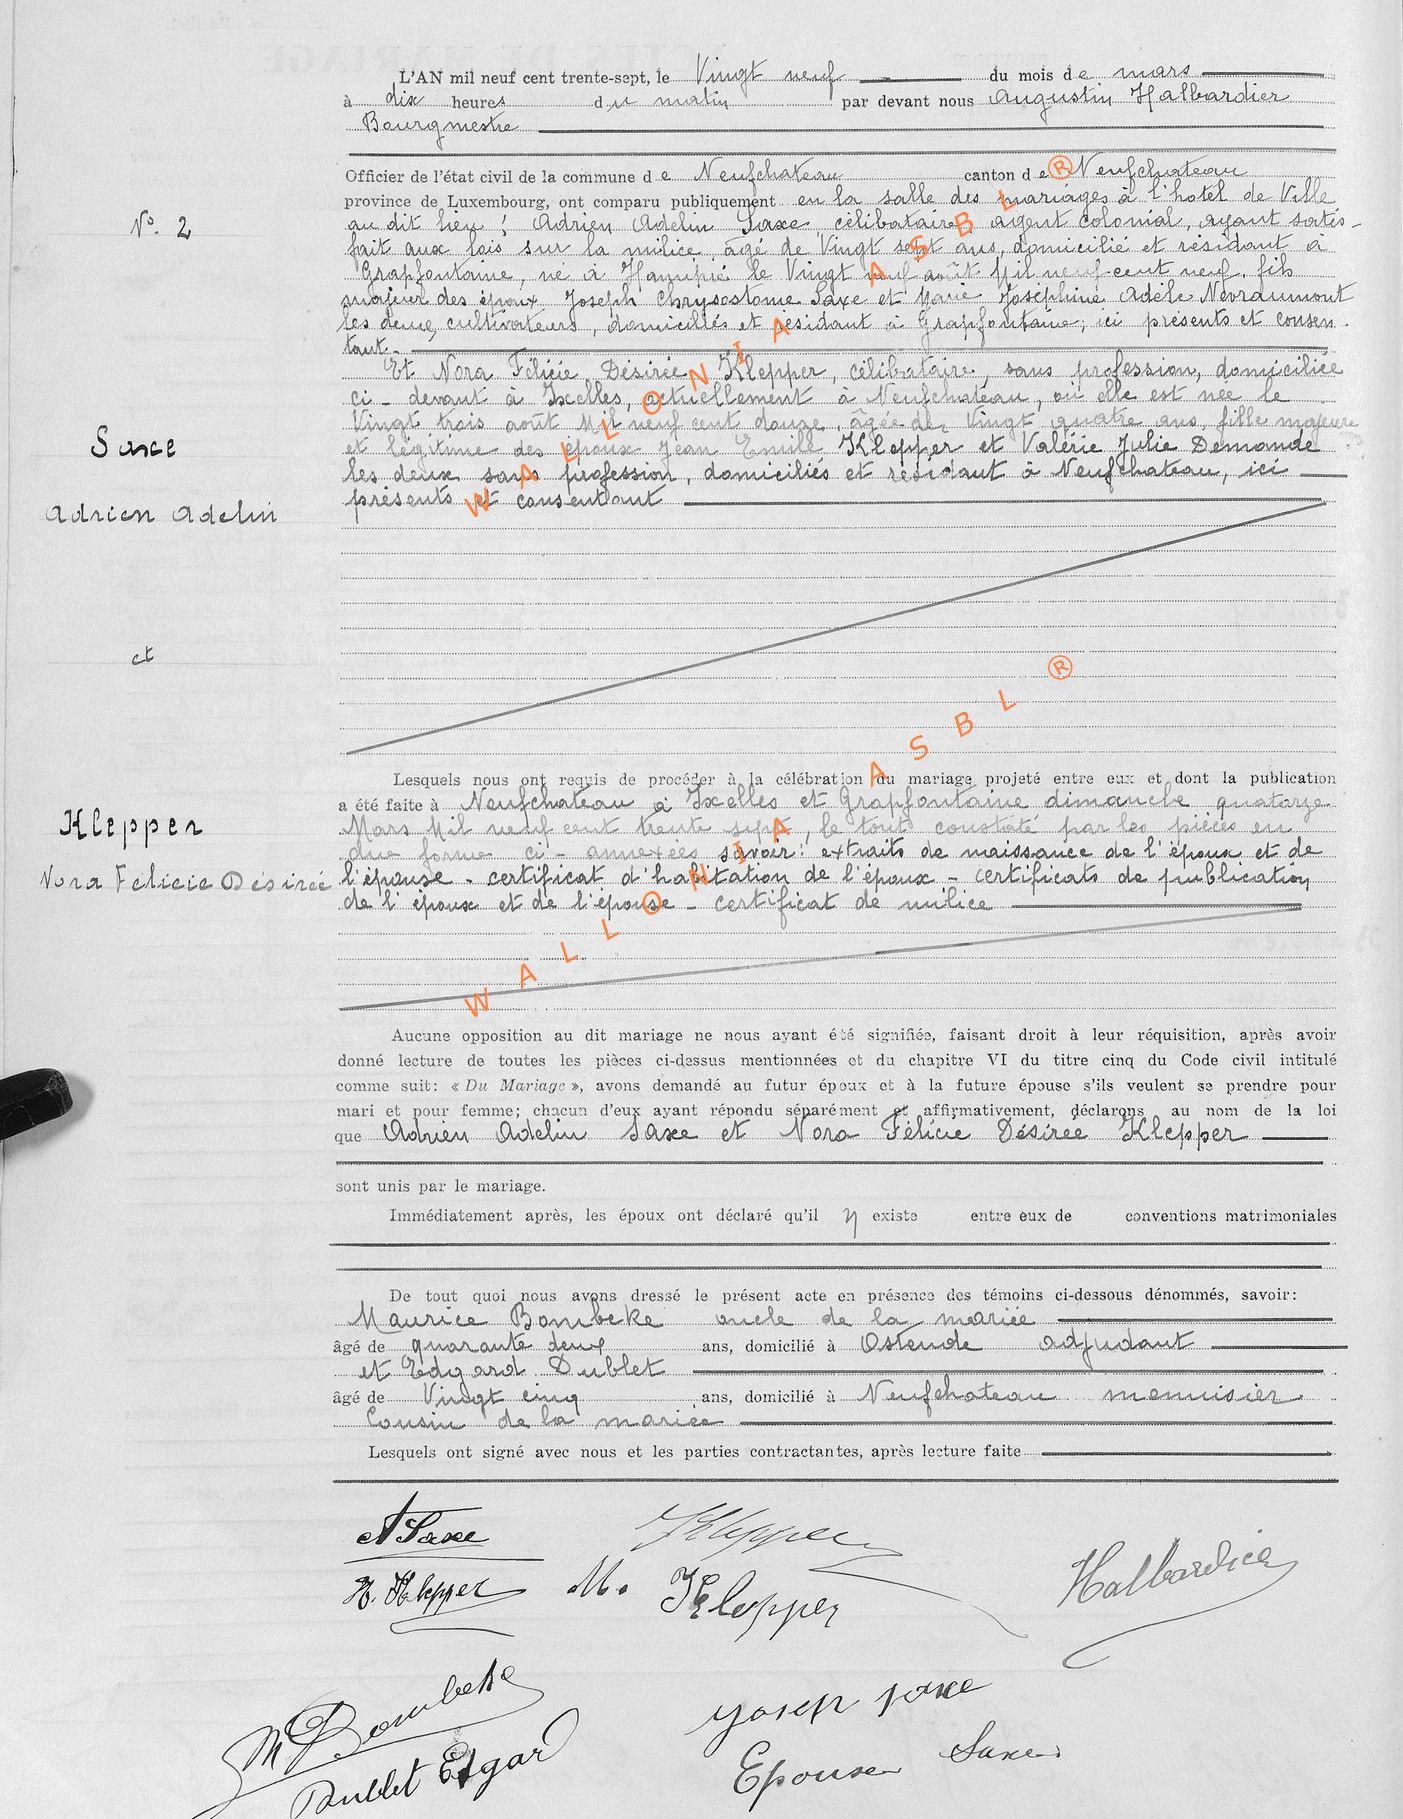 L'AN mil neuf cent trente-sept, le Vingt neuf du mois de mars
à dix heures du matin par devant nous Augustin Halbardier
Bourgmestre
Officier de l'état civil de la commune de Neufchateau canton de Neufchateau
province de Luxembourg, ont comparu publiquement en la salle des mariages à l'hotel de Ville
N°. 2
au dit lieu ! Adrien Adelin Saxe célibataire, agent colonial, ayant satis-
fait aux lois sur la milice, âgé de Vingt sept ans, domicilié et résidant à
Grapfontaine, né à Hamipré le Vingt neuf août Mil neuf cent neuf, fils
majeur des époux Joseph Chrysostome Saxe et Marie Joséphine Adèle Nevraumont
les deux cultivateurs, domiciliés et résidant à Grapfontaine, ici présents et consen-
tant.
Et Nora Félicie Désirée Klepper, célibataire, sans profession, domiciliée
ci-devant à Ixelles, actuellement à Neufchateau, où elle est née le
Vingt trois août Mil neuf cent douze, âgée de Vingt quatre ans, fille majeure
Saxe
et légitime des époux Jean Emile Klepper et Valérie Julie Demande
les deux sans profession, domiciliés et résidant à Neufchateau, ici
présents et consentant
Adrien Adelin
et
WALLONIA ASBL ®
Lesquels nous ont requis de procéder à la célébration du mariage projeté entre eux et dont la publication
a été faite à Neufchateau à Ixelles et Grapfontaine dimanche quatorze
Klepper
Mars Mil neuf cent trente sept, le tout constaté par les pièces en
due forme ci-annexées savoir: extraits de naissance de l'époux et de
Nora Felicie Désirée
l'épouse - certificat d'habitation de l'époux - certificats de publication
de l'époux et de l'épouse - certificat de milice
WALLONIA ASBL ®
Aucune opposition au dit mariage ne nous ayant été signifiée, faisant droit à leur réquisition, après avoir
donné lecture de toutes les pièces ci-dessus mentionnées et du chapitre VI du titre cinq du Code civil intitulé
comme suit: « Du Mariage », avons demandé au futur époux et à la future épouse s'ils veulent se prendre pour
mari et pour femme; chacun d'eux ayant répondu séparément et affirmativement, déclarons au nom de la loi
que Adrien Adelin Saxe et Nora Félicie Désirée Klepper
sont unis par le mariage.
Immédiatement après, les époux ont déclaré qu'il y existe entre eux de conventions matrimoniales
De tout quoi nous avons dressé le présent acte en présence des témoins ci-dessous dénommés, savoir:
Maurice Bombeke oncle de la mariée
âgé de quarante deux ans, domicilié à Ostende adjudant
et Edgard Dublet
âgé de Vingt cinq ans, domicilié à Neufchateau menuisier
Cousin de la mariée
Lesquels ont signé avec nous et les parties contractantes, après lecture faite
A Saxe
Klepper
Halbardier
N. Klepper
M. Klepper
M Bombeke
Josep saxe
Dublet Edgard
Epouse Saxe